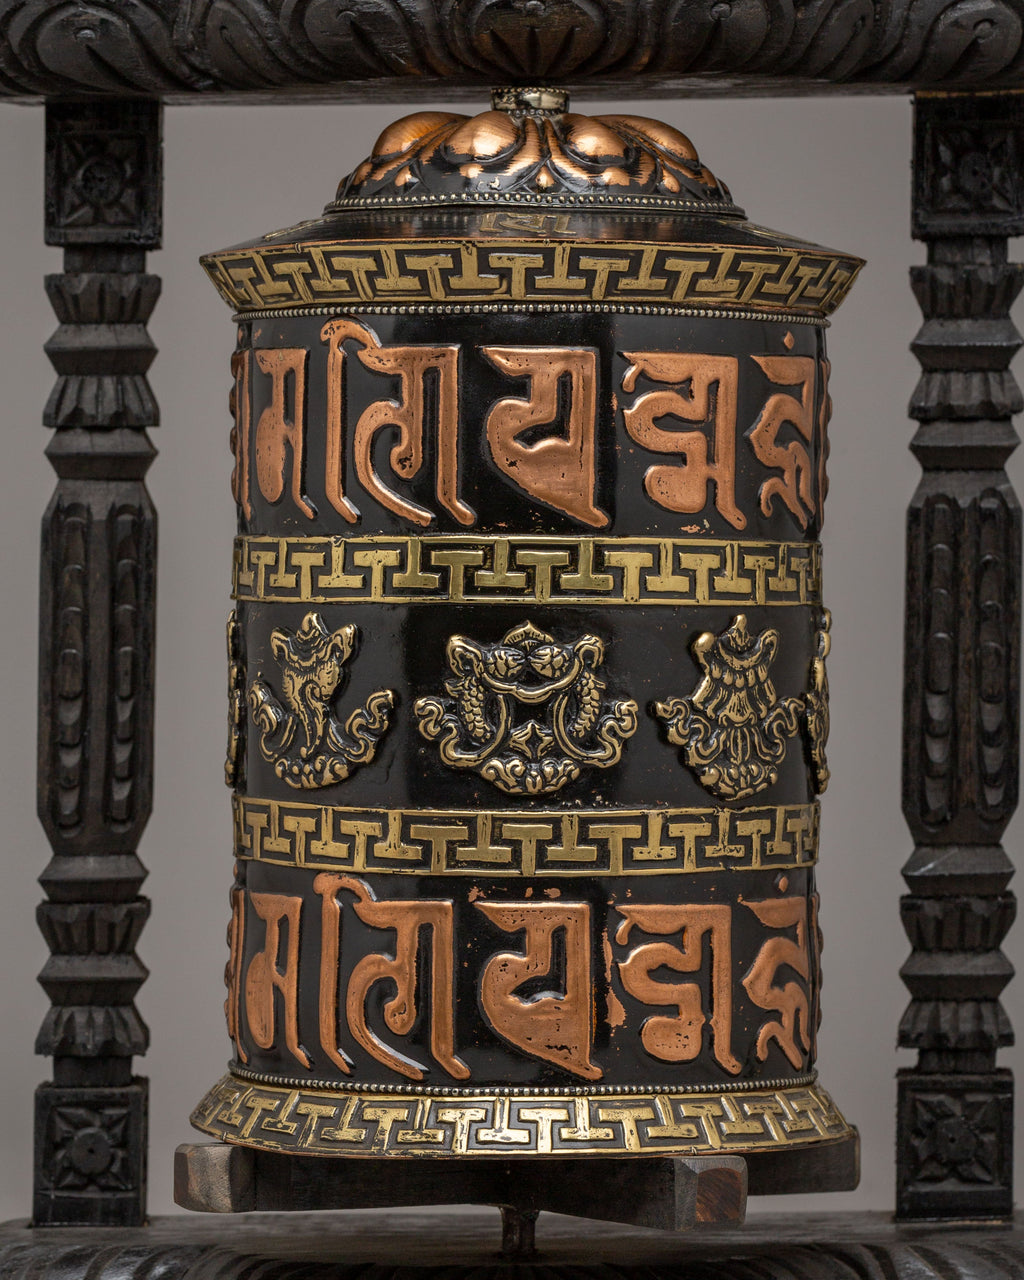 मणिपद्महुं
मणिपद्महुं